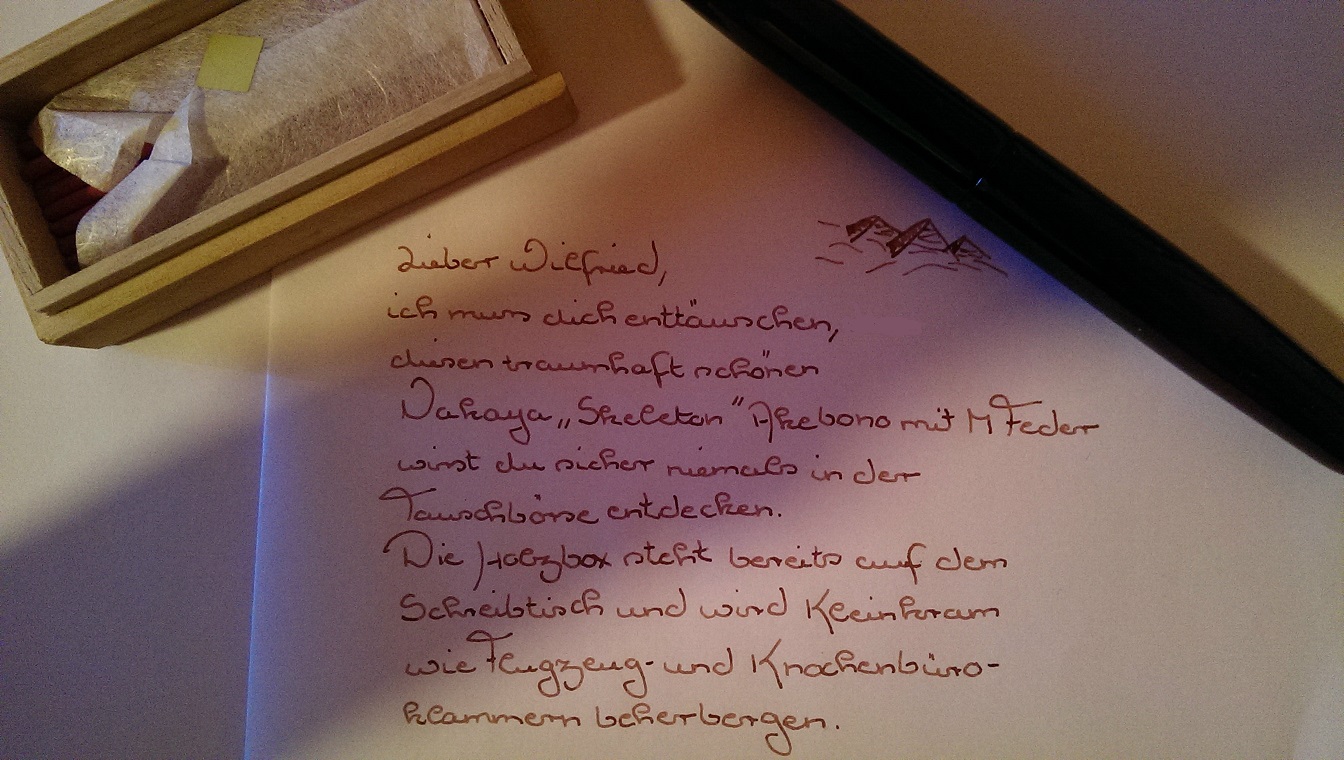 Lieber Wilfried,
ich muss dich enttäuschen,
diesen traumhaft schönen
Nakaya „Skeleton" Akebono mit M Feder
wirst du sicher niemals in der
Tauschbörse entdecken.
Die Holzbox steht bereits auf dem
Schreibtisch und wird Kleinkram
wie Flugzeug- und Knochenbüro-
klammern beherbergen.